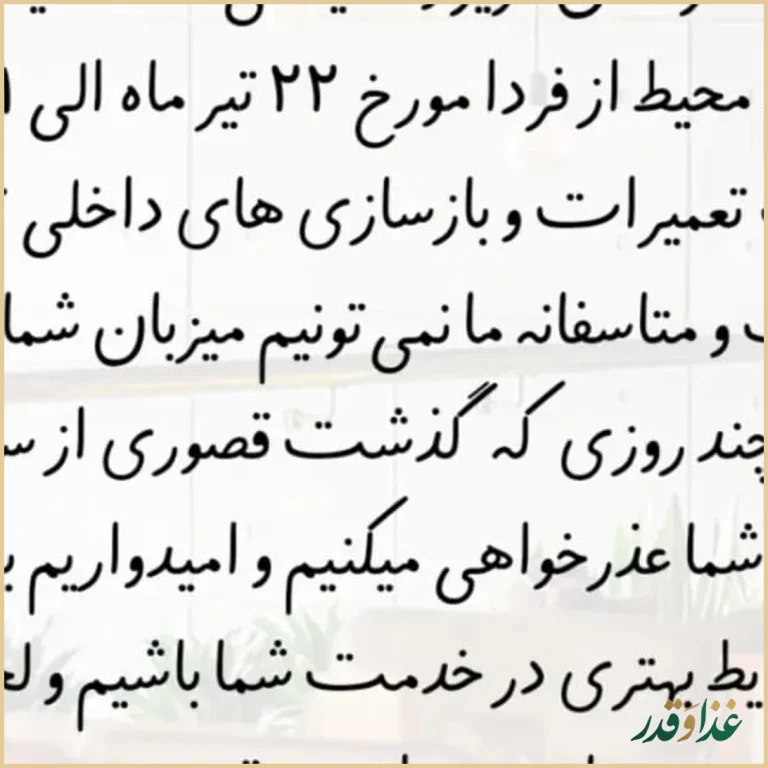 محیط از فردا مورخ ۲۲ تیر ماه الی
تعمیرات و بازسازی های داخلی
و متاسفانه ما نمی تونیم میزبان شما
چند روزی که گذشت قصوری از
شما عذرخواهی میکنیم و امیدواریم
بهتری در خدمت شما باشیم و
غذا و قدر